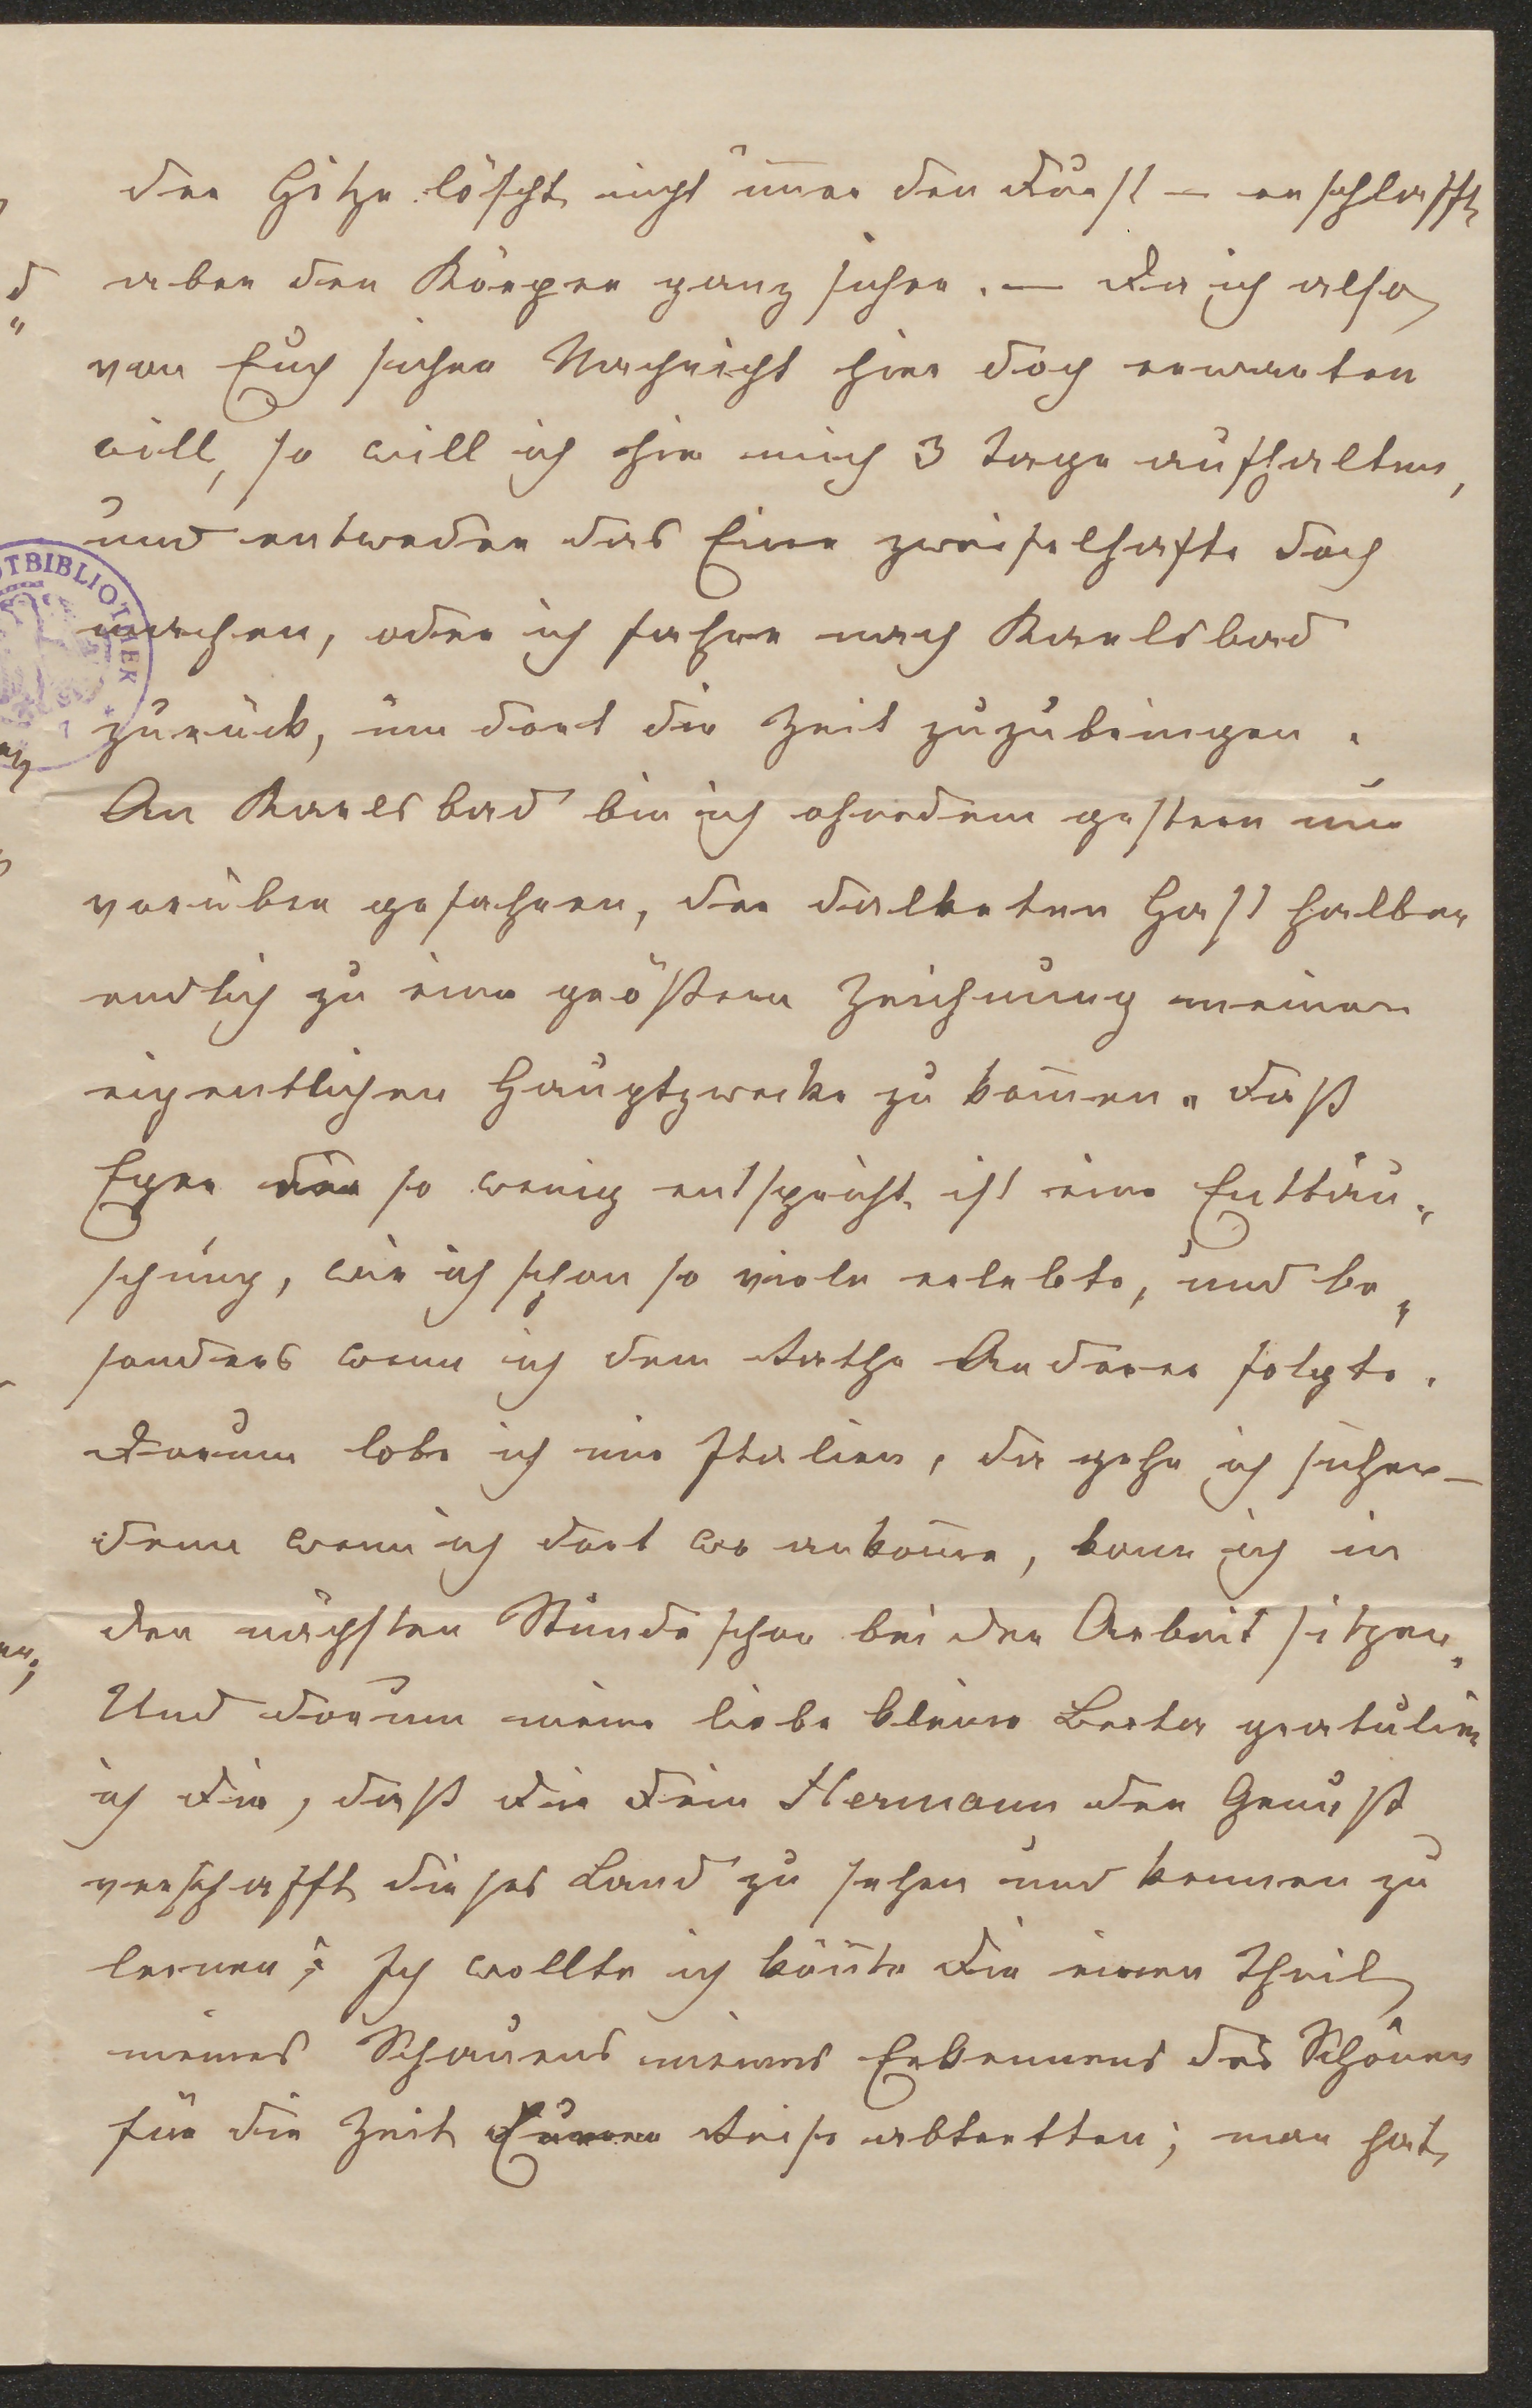 der Hitze löscht nicht im̄er den Durst — erschlafft
aber den Körper ganz sicher. — Da ich also
von Euch sicher Nachricht hier doch erwarten
will, so will ich hier mich 3 Tage aufhalten,
und entweder das Eine zweifelhafte doch
machen, oder ich fahre nach Karlsbad
zurück, um dort die Zeit zuzubringen.
An Karlsbad bin ich ohnedem gestern nur
vorüber gefahren, der dalketen Hast halber
endlich zu einer größern Zeichnung meinem
eigentlichen Hauptzwecke zu kom̄en. Daß
Eger hier so wenig entspricht ist eine Enttäu„
schung, wie ich schon so viele erlebte, und be„
sonders wenn ich dem Rathe Anderer folgte.
Darum lobe ich mir Italien, da gehe ich sicher —
denn wenn ich dort wo ankom̄e, kann ich in
der nächsten Stunde schon bei der Arbeit sitzen.
Und darum meine liebe kleine Berta gratulire
ich Dir, daß Dir Dein Hermann den Genuß
verschafft dieses Land zu sehen und kennen zu
lernen; Ich wollte ich kön̄te Dir einen Theil
meines Schauens meines Erkennens des Schönen
für die Zeit Eurer Reise abtretten; man hat
OTBIBLIOTHEK